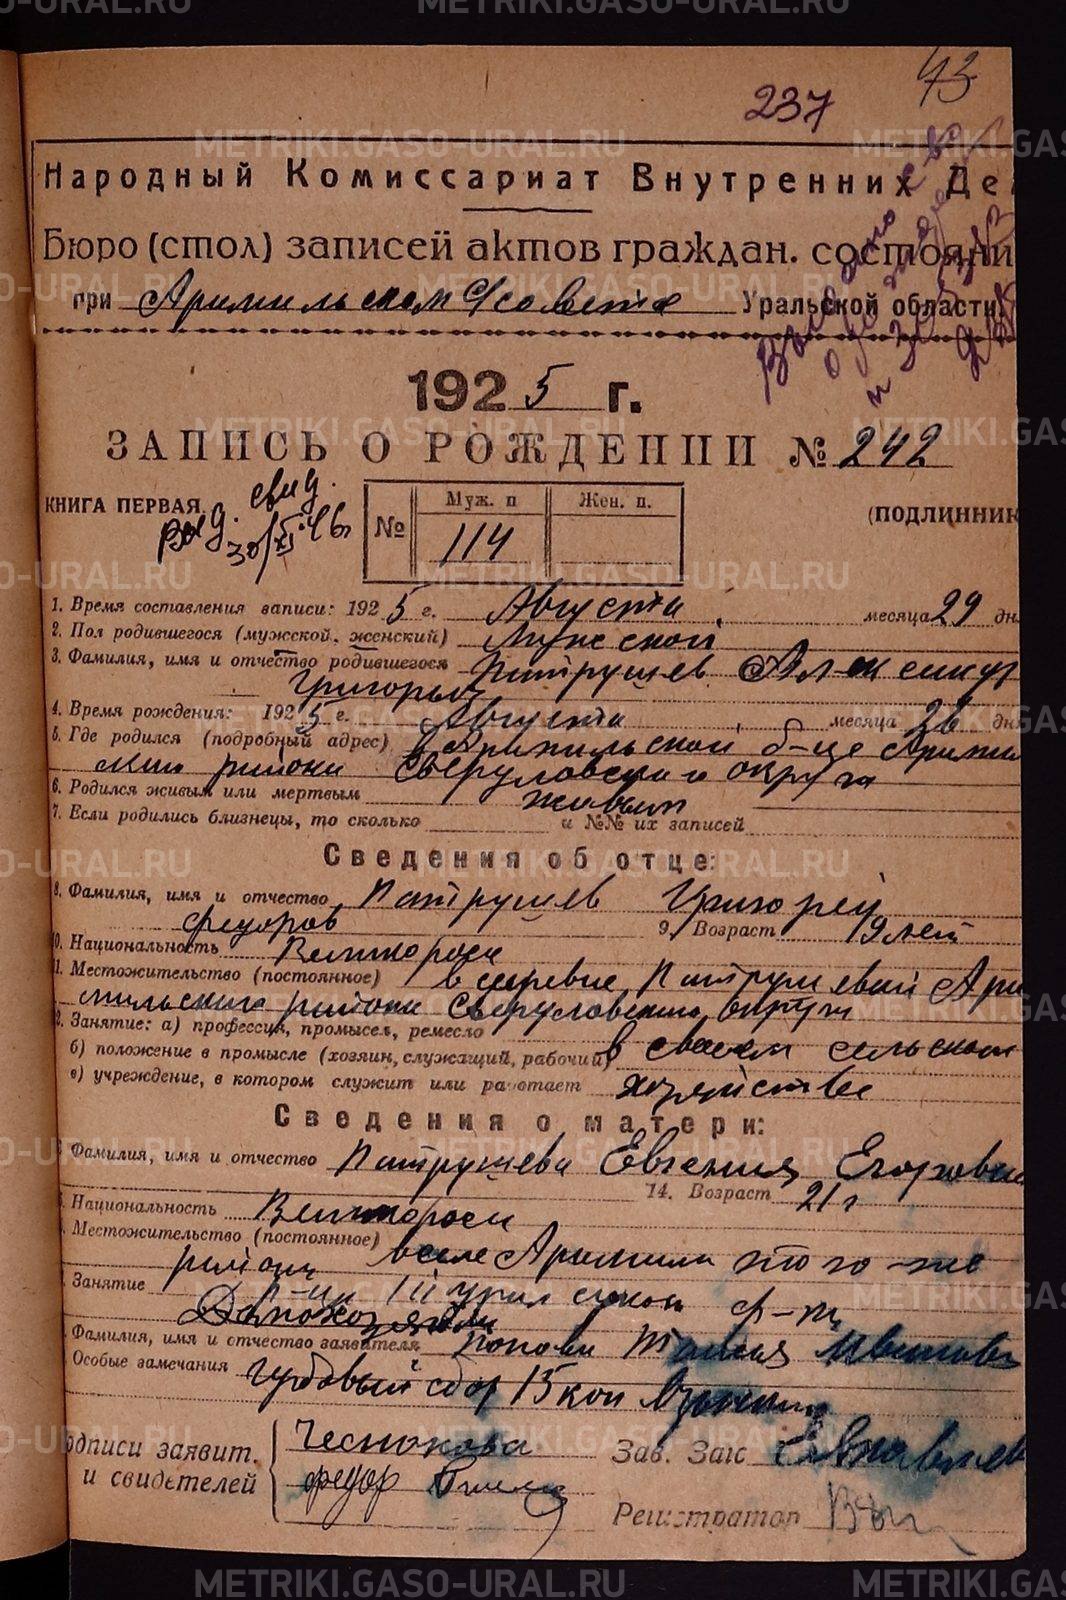 43
237
Народный Комиссариат Внутренних Де
Бюро (стол) записей актов граждан. состояни
при Арамильском С/совете Уральской области
1925 г.
ЗАПИСЬ О РОЖДЕНИИ № 242
КНИГА ПЕРВАЯ. (ПОДЛИННИК
выд. свид.
Муж. п Жен. п.
№ 114
1. Время составления записи: 1925 г. Августа месяца 29 дн.
2. Пол родившегося (мужской, женский) Мужской
3. Фамилия, имя и отчество родившегося Патрушев Александр
Григорьев
4. Время рождения: 1925 г. Августа месяца 26 дн
5. Где родился (подробный адрес) в Арамильской б-це Арами
району Свердловского округа
6. Родился живым или мертвым живым
7. Если родились близнецы, то сколько и №№ их записей
Сведения об отце:
8. Фамилия, имя и отчество Патрушев Григорей
федоров 9. Возраст 19 лет
10. Национальность Великоросс
1. Местожительство (постоянное) в деревне Патрушевой Ара
мильского района Свердловского округа
2. Занятие: а) профессия, промысел, ремесло
б) положение в промысле (хозяин, служащий, рабочий) в своем сельском
в) учреждение, в котором служит или работает хозяйстве
Сведения о матери:
Фамилия, имя и отчество Патрушева Евгения Егоровна
14. Возраст 21 г
Национальность Великоросс
Местожительство (постоянное) в селе Арамили того-же
району
Занятие
Домохозяйка
Фамилия, имя и отчество заявителя Попова
Особые замечания Гербовый сбор 15 коп
одписи заявит. Чеснокова Зав. Загс
и свидетелей федор
Регистратор
METRIKI.GASO-URAL.RU